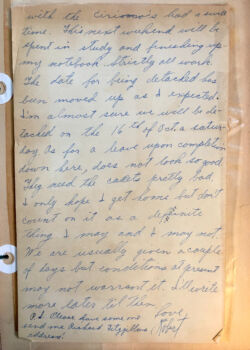 with the Cirimo's had a swell
time. This next weekend will be
spent in study and finishing up
my notebook strictly all work.
The date for being detached has
been moved up as I expected.
I'm almost sure we will be de-
tached on the 16th of Oct. a satur-
day. As for a leave upon completion
down here, does not look so good.
They need the cadets pretty bad,
I only hope I get home but don't
count on it as a definite
thing I may and I may not.
We are usually given a couple
of days but conditions at present
may not warrant it. I'll write
more later til then
Love,
P.S. Please have someone
send me Richard Fitzgibbons
address!